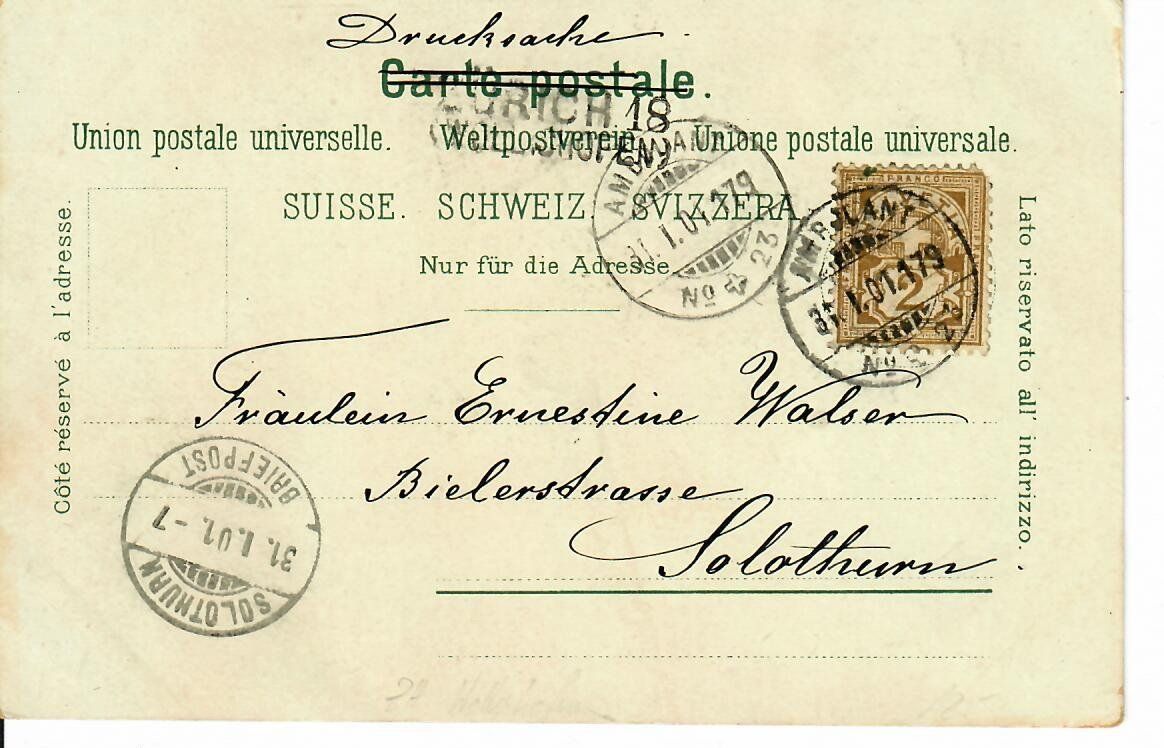 Drucksache
Carte postale.
ZÜRICH 18
Union postale universelle. Weltpostverein. Unione postale universale.
SUISSE. SCHWEIZ. SVIZZERA.
Nur für die Adresse.
AMBULANT
31.I.01.179
No 23
FRANCO
2
AMBULANT
31.I.01.179
No 23
Côté réservé à l'adresse.
Lato riservato all' indirizzo.
Fräulein Ernestine Walser
Bielerstrasse
Solothurn
BRIEFPOST
31.I.01.-7
SOLOTHURN